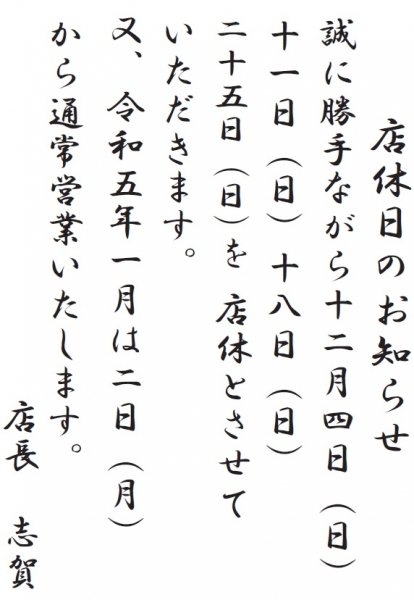 店休日のお知らせ
誠に勝手ながら十二月四日（日）
十一日（日）十八日（日）
二十五日（日）を店休とさせて
いただきます。
又、令和五年一月は二日（月）
から通常営業いたします。
店長　志賀